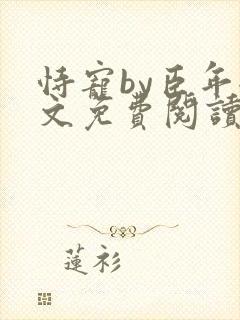 恃寵by臣年
文免費閱讀
蓮衫